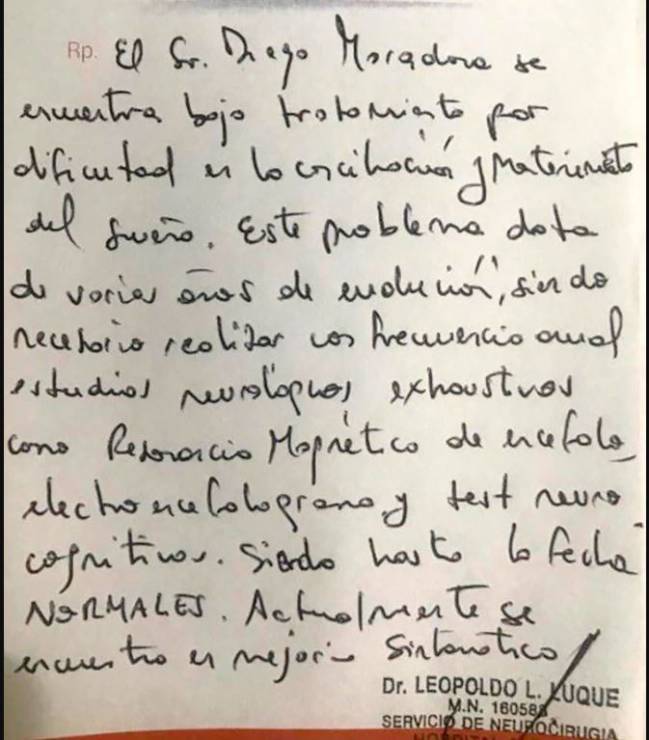 Rp. El Sr. Diego Maradona se
encuentra bajo tratamiento por
dificultad en la conciliación y mantenimiento
del sueño. Este problema data
de varios años de evolución, siendo
necesario realizar con frecuencia anual
estudios neurológicos exhaustivos
como Resonancia Magnética de encefalo,
electroencefalograma y test neuro
cognitivos. Siendo hasta la fecha
NORMALES. Actualmente se
encuentra en mejoria sintomático
Dr. LEOPOLDO L. LUQUE
M.N. 160588
SERVICIO DE NEUROCIRUGIA
HOSPITAL